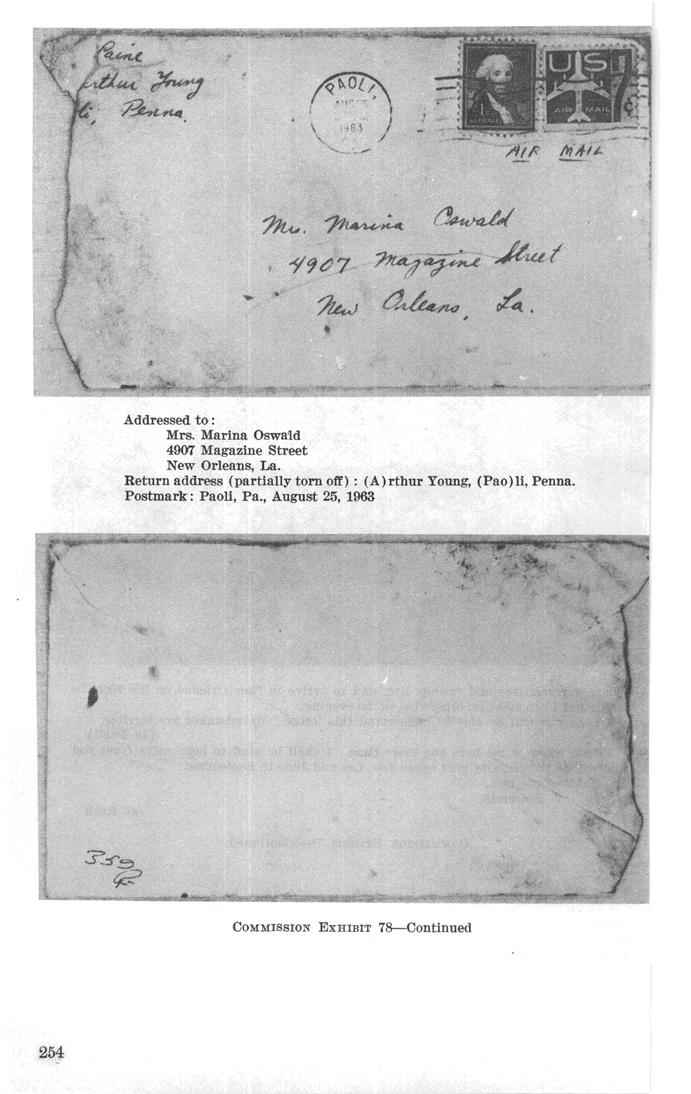 Paine
rthur Young
li, Penna.
PAOLI,
AUG
1963
1¢
U.S. POSTAGE
US
7¢
AIR MAIL
AIR MAIL
Mrs. Marina Oswald
4907 Magazine Street
New Orleans, La.
Addressed to:
Mrs. Marina Oswald
4907 Magazine Street
New Orleans, La.
Return address (partially torn off) : (A)rthur Young, (Pao)li, Penna.
Postmark: Paoli, Pa., August 25, 1963
359
COMMISSION EXHIBIT 78—Continued
254